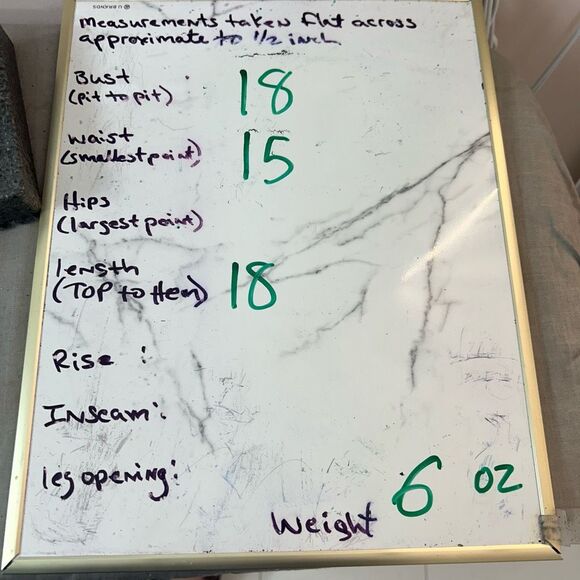 U BRANDS
measurements taken flat across
approximate to 1/2 inch
Bust 18
(pit to pit)
waist 15
(smallest point)
Hips
(largest point)
length 18
(TOP to Hem)
Rise :
Inseam:
leg opening:
weight 6 oz